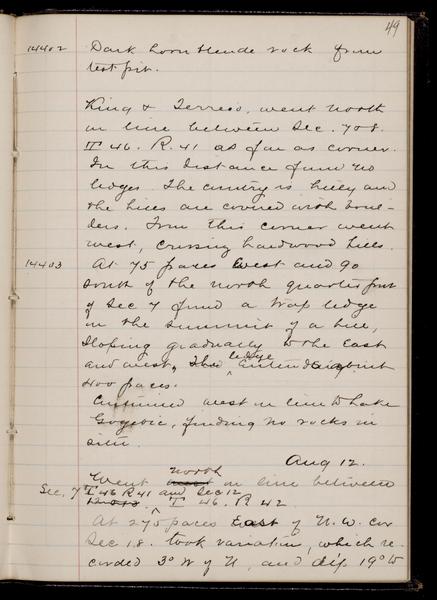 49
14402 Dark hornblende rock from
test pit.
King & Ferress, went north
on line between Sec. 7 & 8.
T 46. R. 41 as far as corner.
In this distance found no
ledges. The country is hilly and
the hills are covered with boul-
ders. From this corner went
west, crossing hardwood hills.
14403 At 75 paces West and 90
south of the north quarter post
of Sec 7 found a trap ledge
on the summit of a hill,
sloping gradually to the East
and west, The ledge Extends about
400 paces.
Continued west on line to Lake
Gogebic, finding no rocks in
situ.
Aug 12.
north
Went west on line between
Sec. 7 T 46 R 41 and Sec 12
T 46. R 42.
At 275 paces East of N.W. cor
Sec 18. took variation, which re-
corded 3° W of N, and dip 19° W